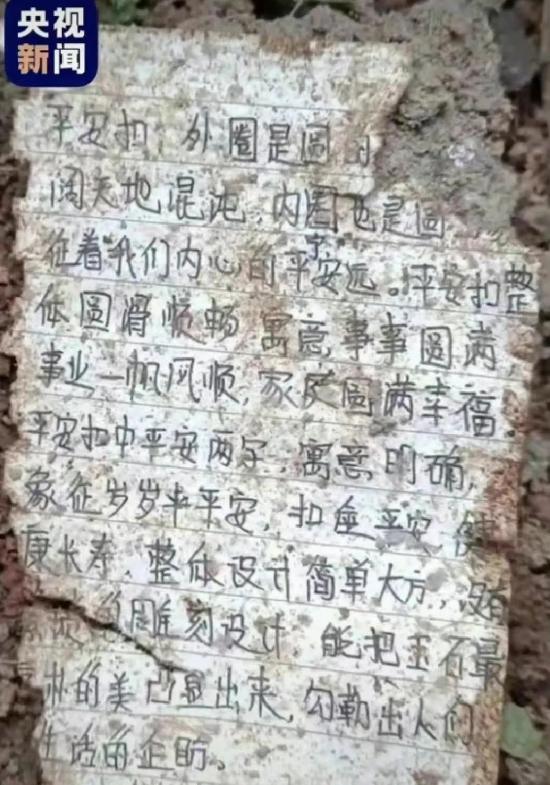 央视
新闻
平安扣 外圈是圆
阔天地混沌,内圈也是圆
征着我们内心的平安宁远。平安扣整
体圆滑顺畅 寓意事事圆满,
事业一帆风顺,家庭圆满幸福。
平安扣中平安两字,寓意明确,
象征岁岁平平安,扣 平安 健
康长寿。整体设计简单大方,没有
雕刻设计 能把玉石最
朴的美凸显出来,勾勒出人们
生活的企盼。